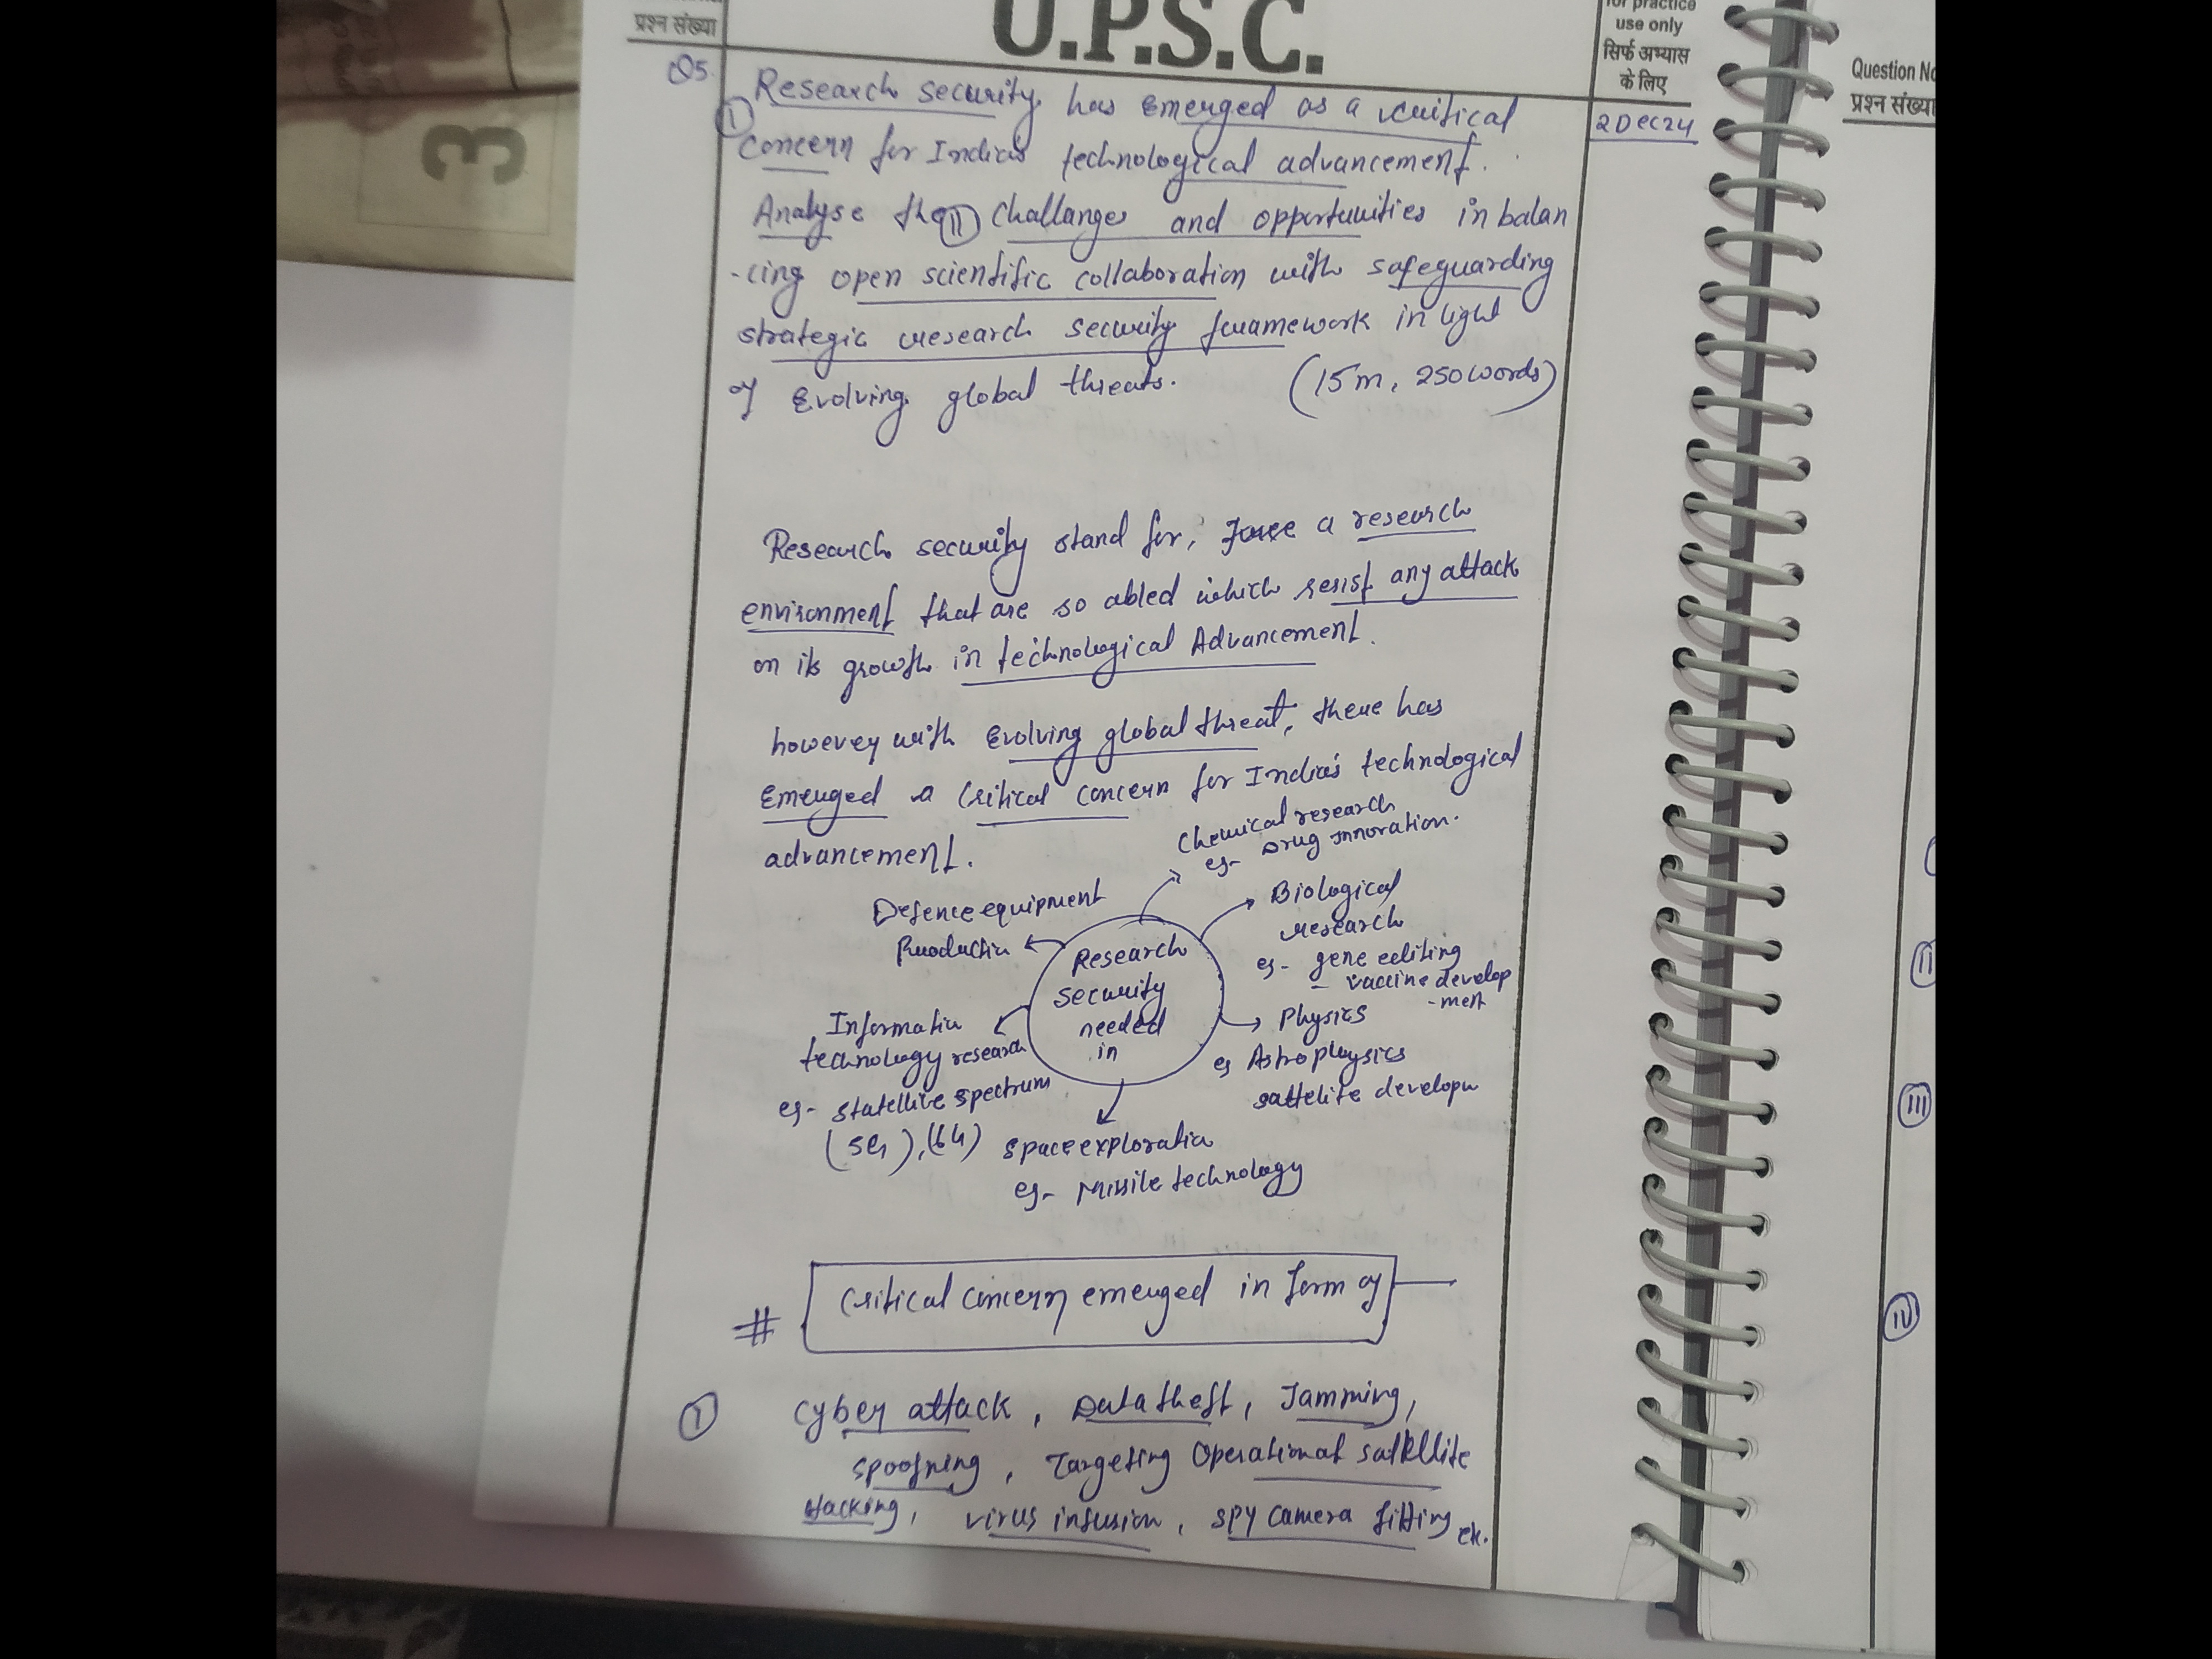 प्रश्न संख्या
U.P.S.C.
for practice
use only
सिर्फ अभ्यास
के लिए
Question No
प्रश्न संख्या
3
Q5.
2 Dec 24
I Research security has emerged as a critical
concern for India's technological advancement.
Analyse the II challanges and opportunities in balan
-cing open scientific collaboration with safeguarding
strategic research security framework in light
of Evolving global threats. (15m, 250 words)
Research security stand for, a research
environment that are so abled which resist any attack
on its growth in technological Advancement.
however with Evolving global threat, there has
Emerged a critical concern for India's technological
advancement.
Chemical research
eg- Drug innovation.
Defence equipment
Production
Biological
research
eg- gene editing
- vaccine develop
-ment
Research
security
needed
in
Physics
eg Astrophysics
sattelite developm
Informatio
technology research
eg- statellive spectrum
(5G), (6G)
space exploratio
eg- Missile technology
# Critical concern emerged in form of
I Cyber attack, Data theft, Jamming,
spoofning, Targeting Operational satellite
Hacking, virus infusion, SPY camera fitting etc.
II
III
IV